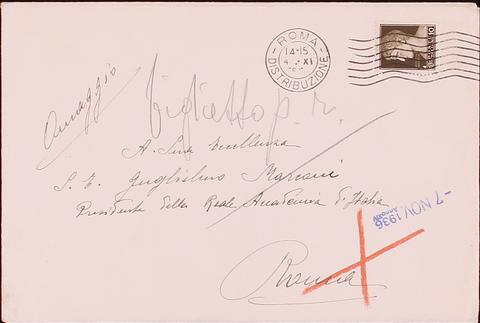 ROMA
14-15
4 XI
DISTRIBUZIONE
10
Omaggio
biglietto p. r.
A Sua Eccellenza
S. E. Guglielmo Marconi
Presidente della Reale Accademia d'Italia
Roma
-7 NOV. 1936